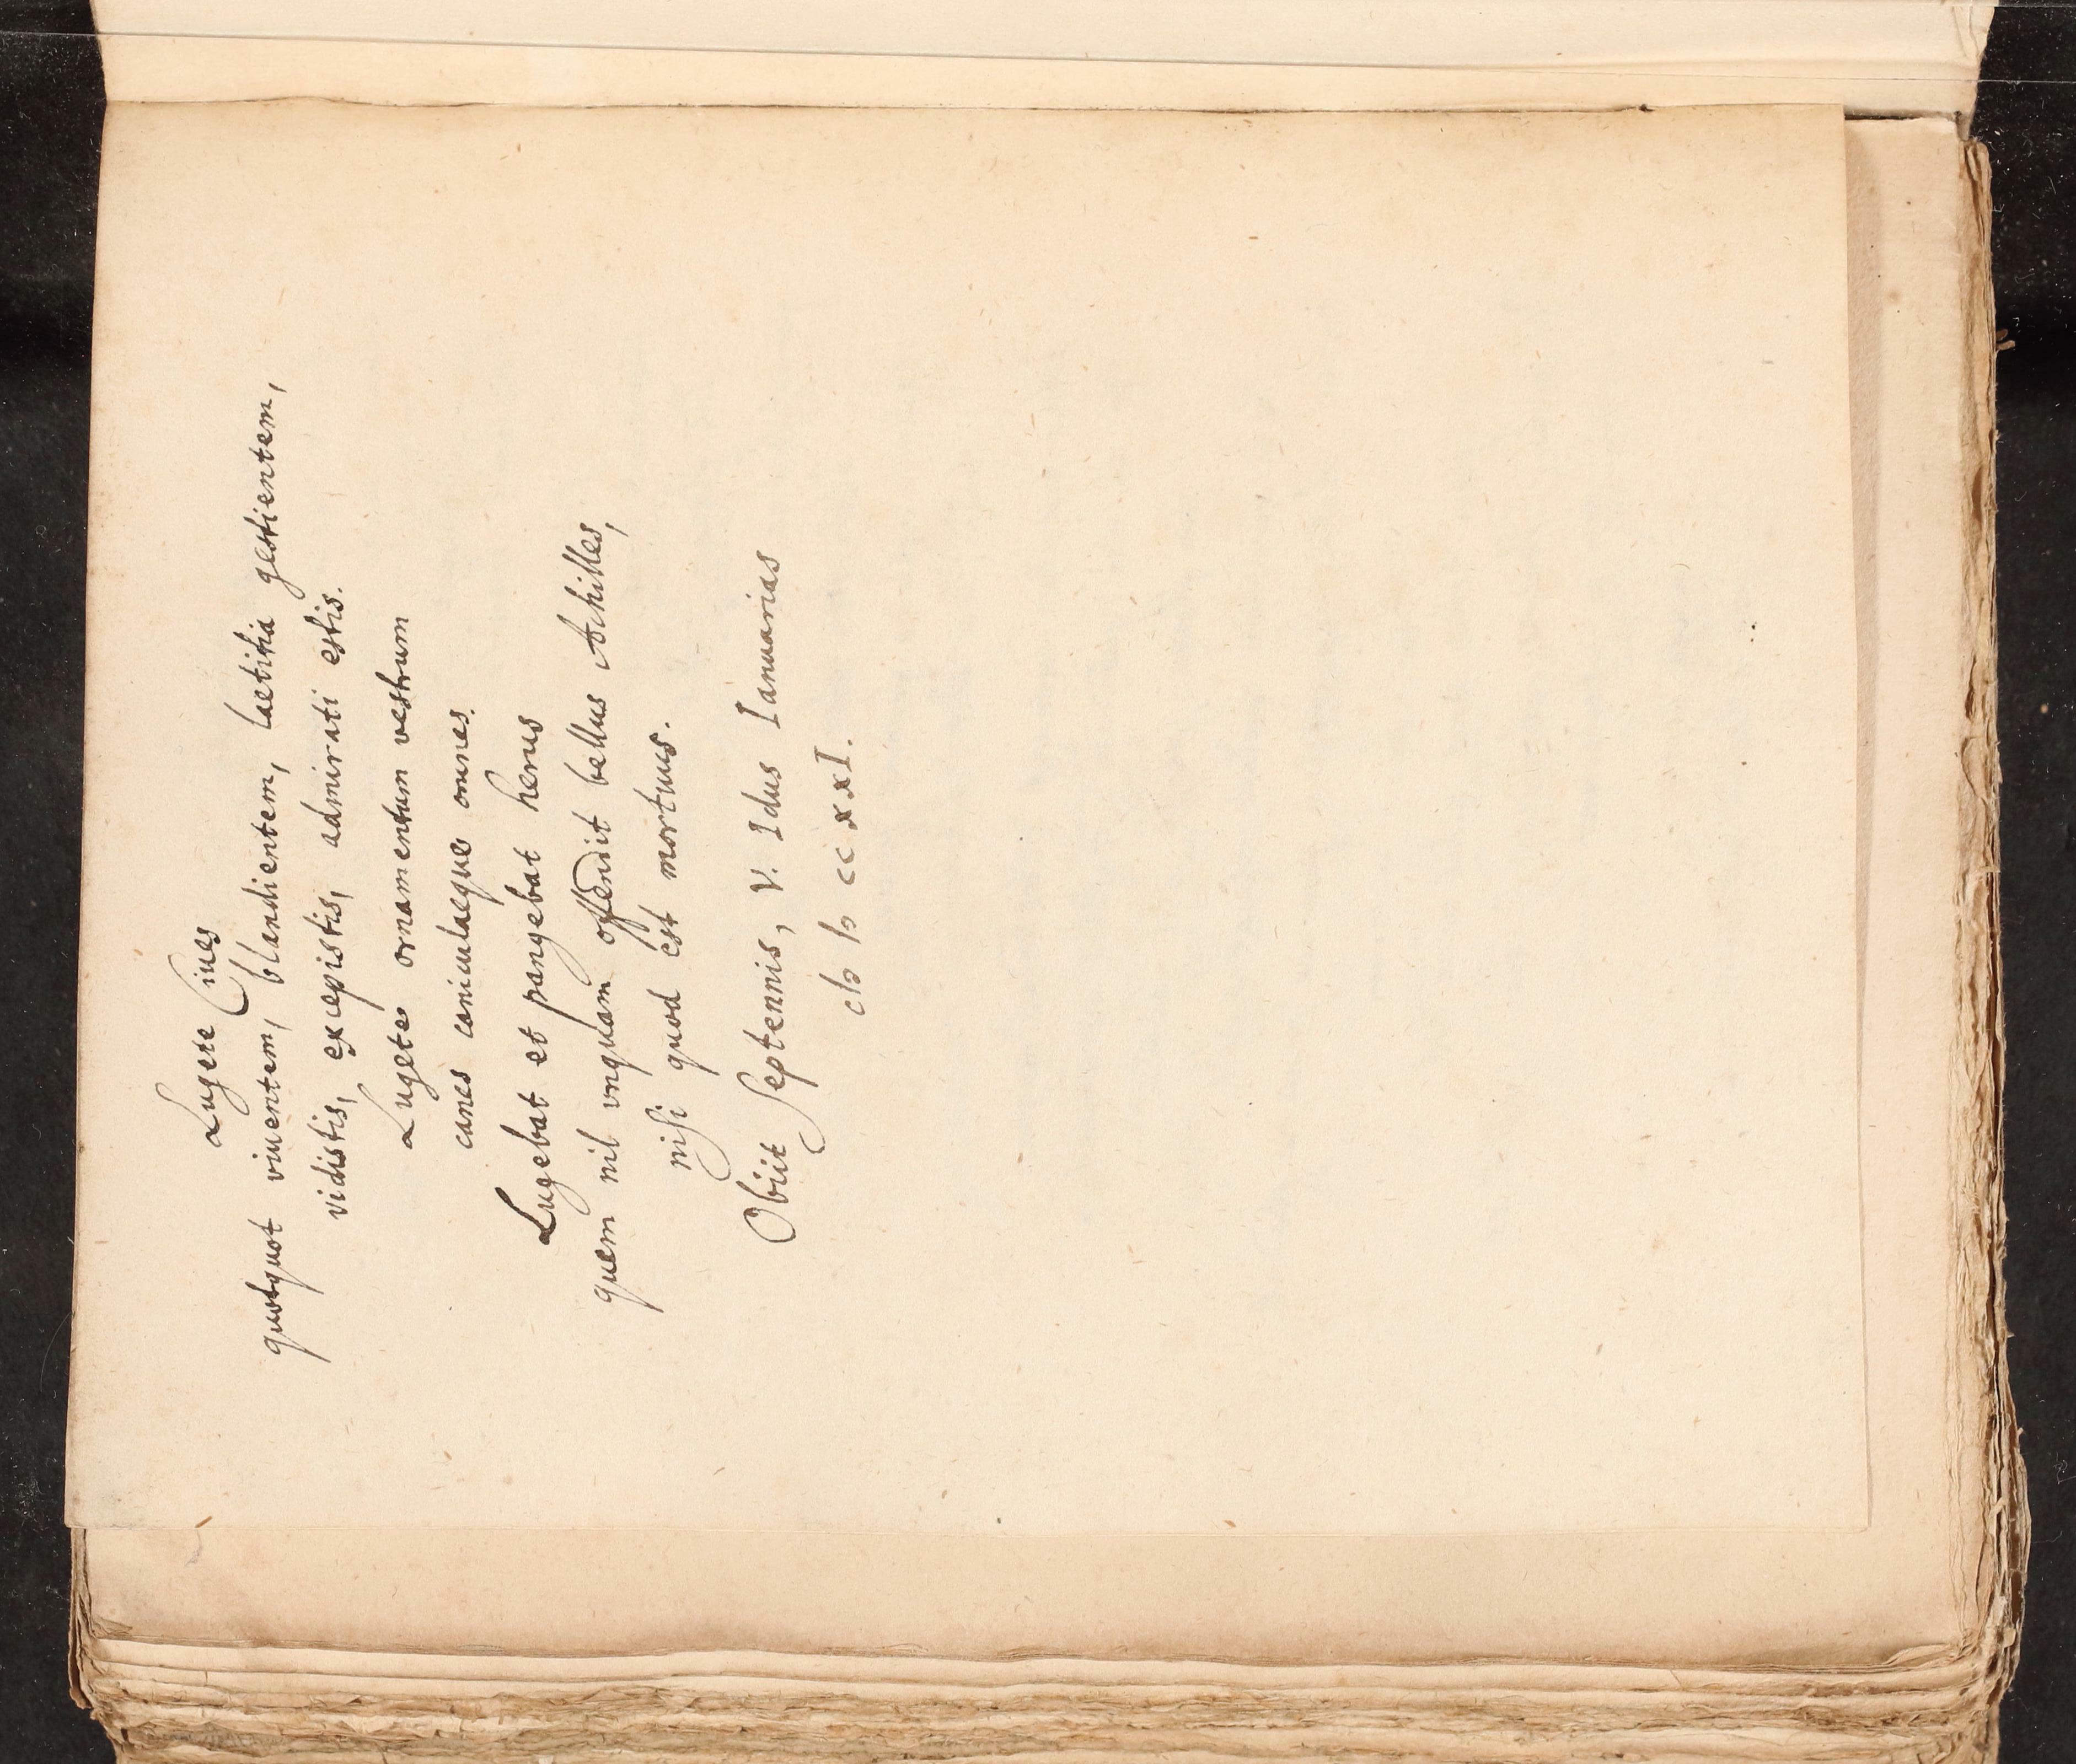 Lugete Ciues
quotquot viuentem, blandientem, laetitia gestientem,
vidistis, excepistis, admirati estis.
Lugete ornamentum vestrum
canes caniculaeque omnes.
Lugebat et pangebat herus
quem nil vnquam offendit bellus Achilles,
nisi quod est mortuus.
Obiit Septennis, V. Idus Ianuarias
cIↃ IↃ ccxxI.